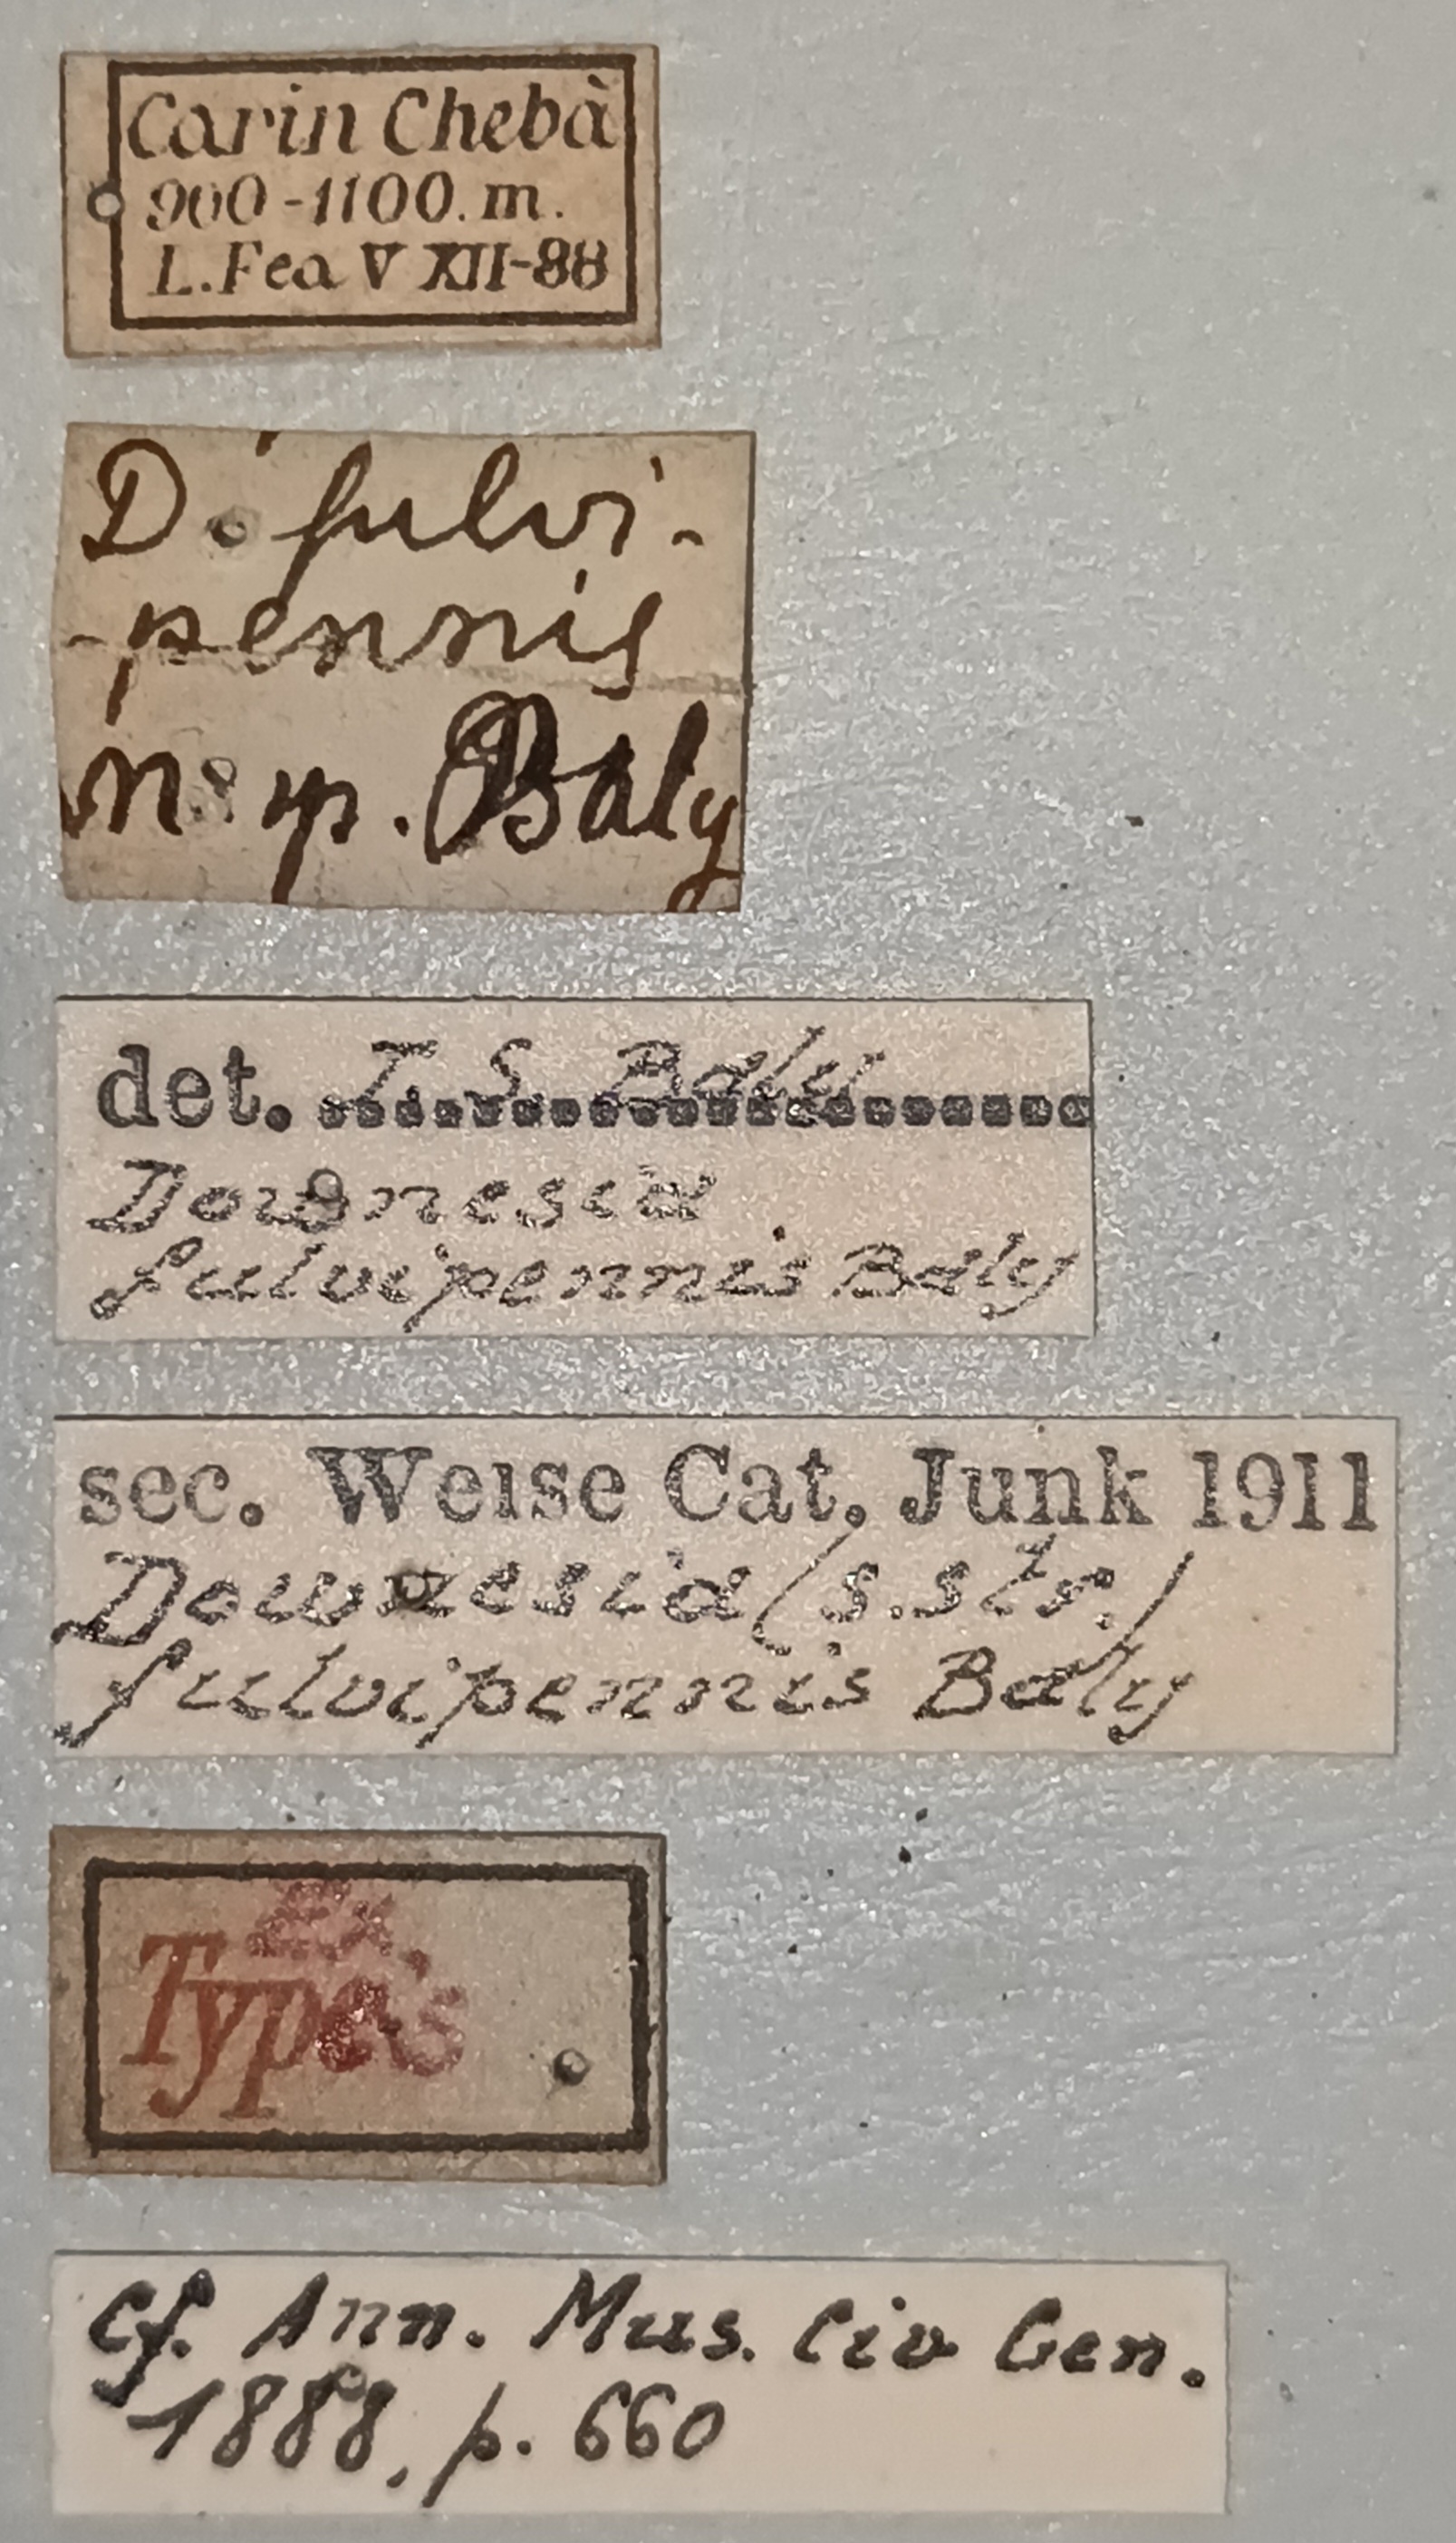 Carin Chebà
900-1100. m.
L. Fea V XII-88
D. fulvi-
-pennis
n. sp. Baly
det. J. S. Baly
Downesia
fulvipennis Baly
sec. Weise Cat. Junk 1911
Downesia (s. str.)
fulvipennis Baly
Ex.
Type's
cf. Ann. Mus. Civ Gen.
1888, p. 660